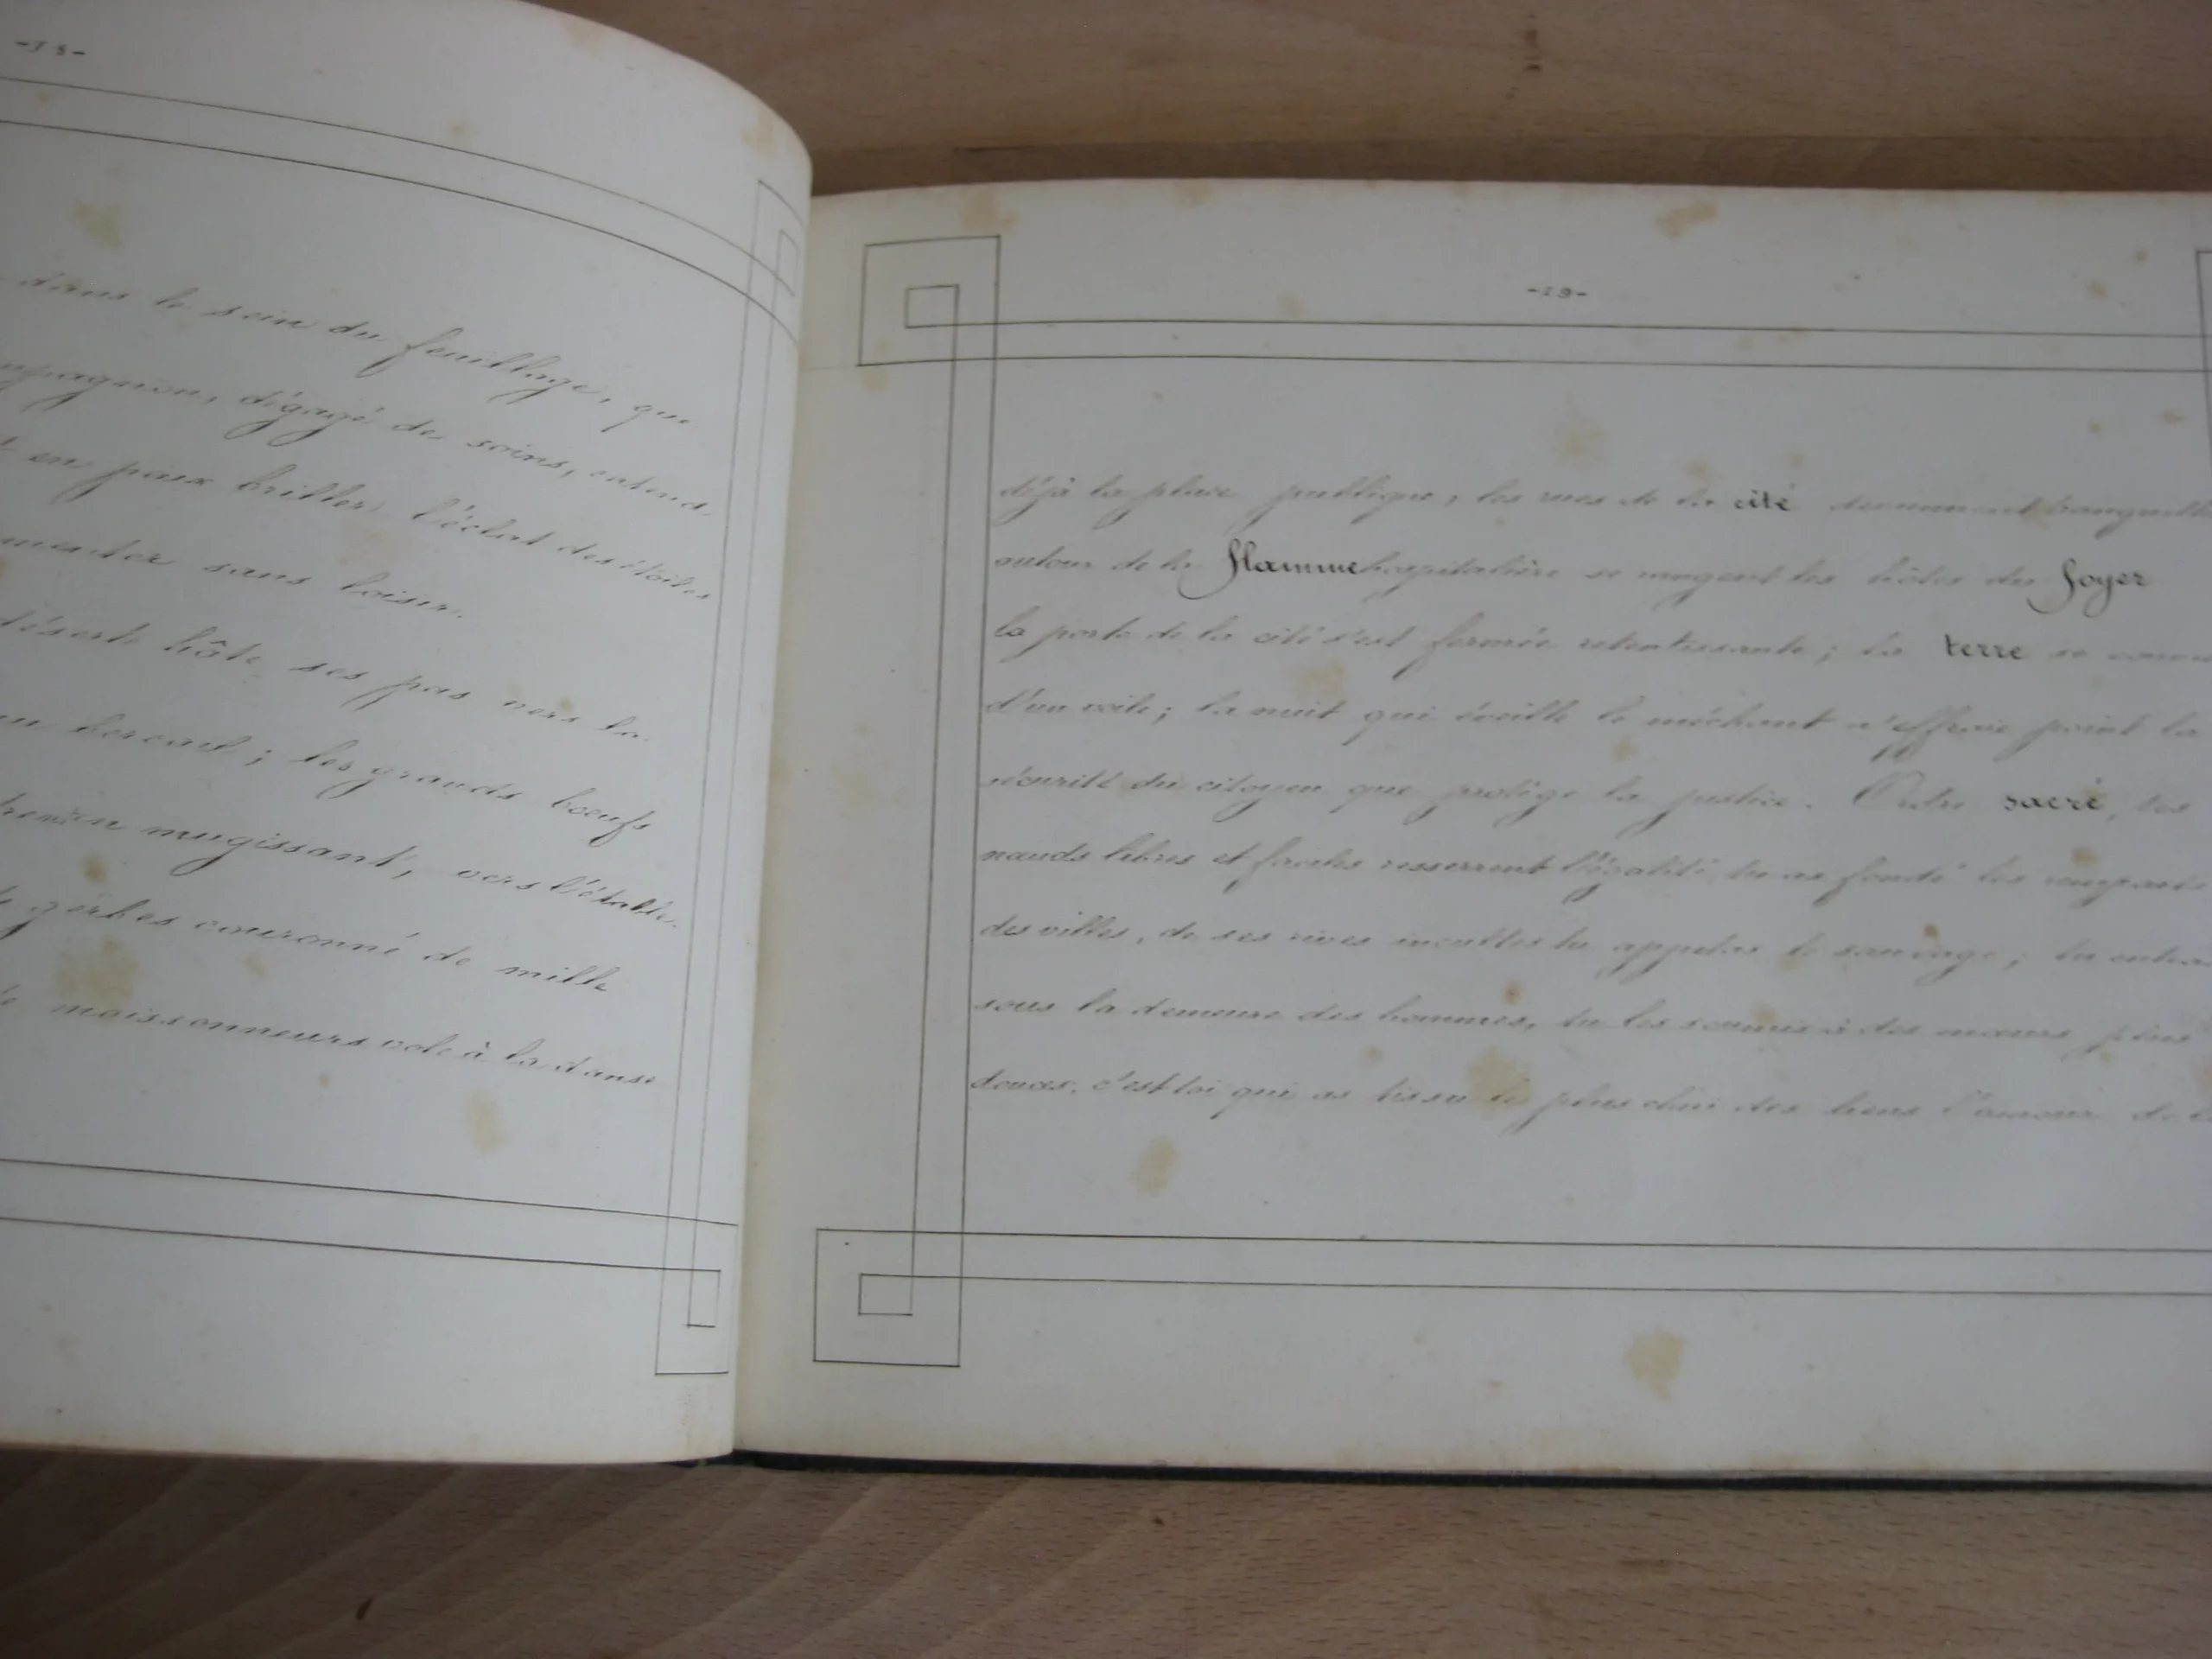 dans le sein du feuillage, que
dégagé de soins, entend
en paix briller l'éclat des étoiles
sans loisir.
hôte ses pas vers la
bercail; les grands bœufs
mugissant, vers l'étable.
gerbes couronné de mille
moissonneurs vole à la danse
-19-
déjà la place publique, les rues de la cité
autour de la flamme hospitalière se rangent les hôtes du foyer
la porte de la cité s'est fermée retentissante; la terre se
d'un voile; la nuit qui éveille le méchant n'effraie point la
sécurité du citoyen que protège la justice. Ordre sacré, tes
nœuds libres et faciles resserrent l'égalité, tu as fondé les remparts
des villes, de ses rives incultes tu appelas le sauvage; tu
sous la demeure des hommes, tu les soumis à des mœurs plus
douces. c'est toi qui as tissu le plus cher des liens l'amour de